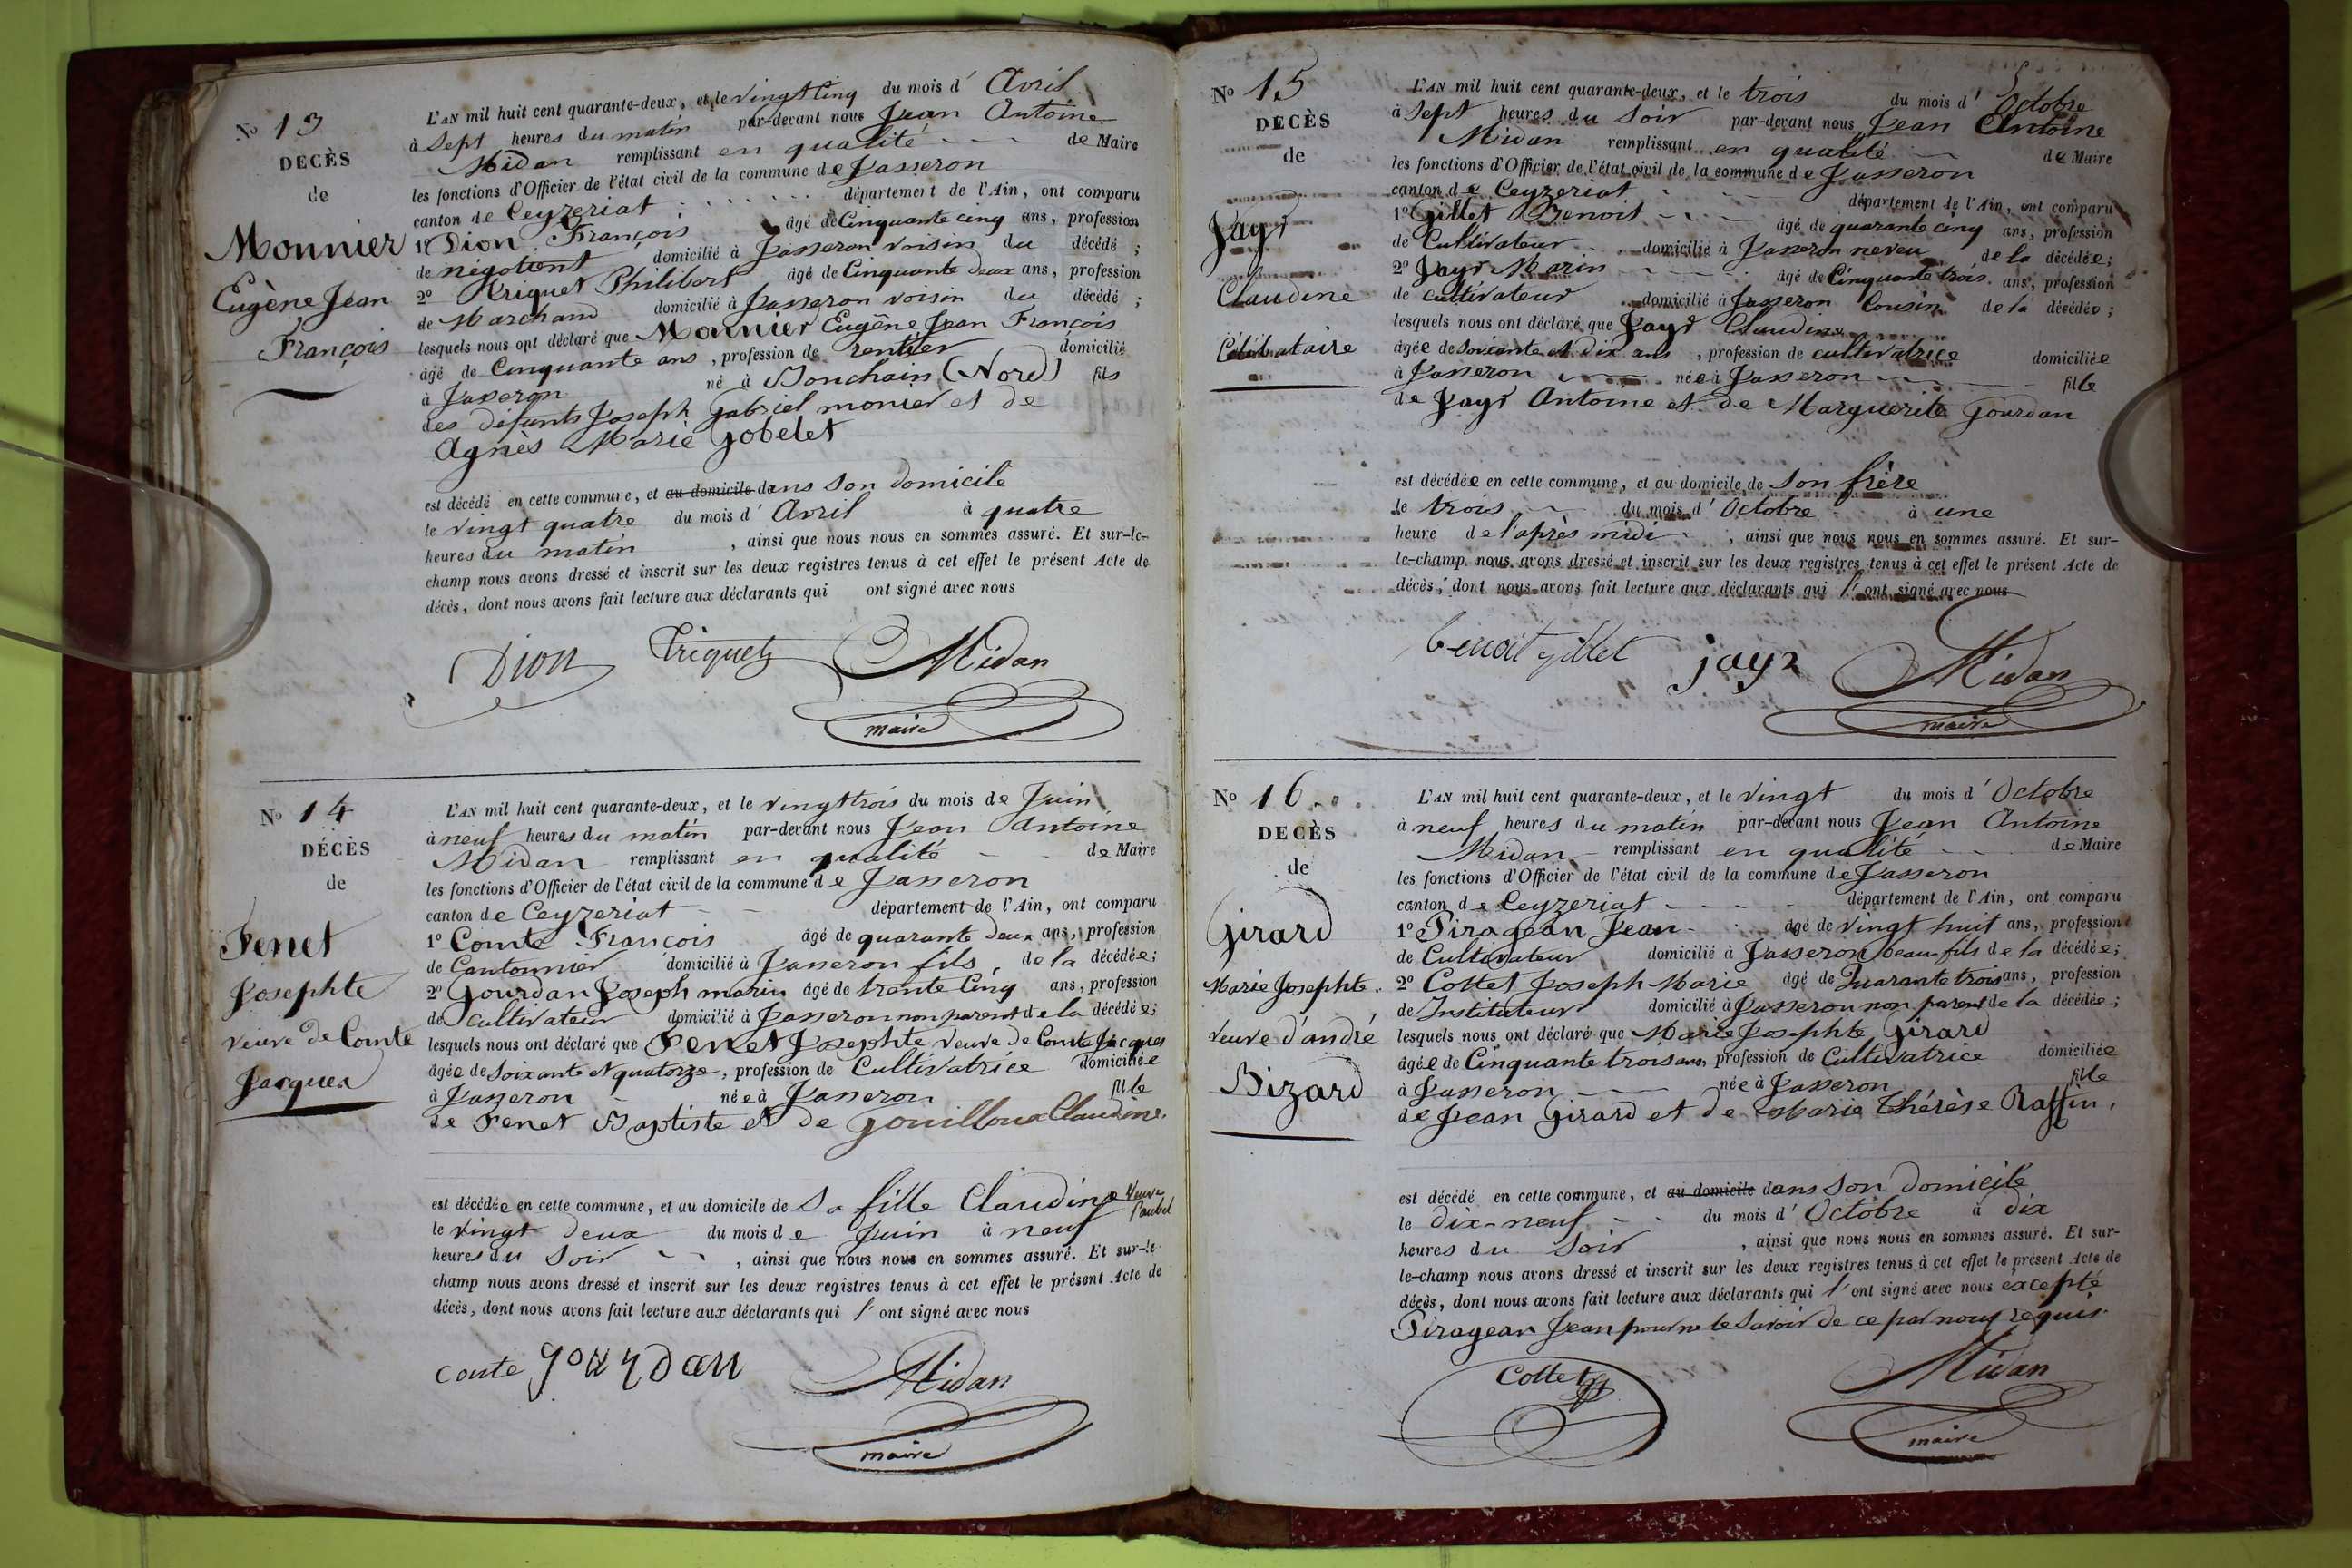 No 13
DECÈS
de
Monnier
Eugène Jean
François
L'AN mil huit cent quarante-deux, et le vingt Cinq du mois d' Avril
à Sept heures du matin par-devant nous Jean Antoine
Midan remplissant en qualité de Maire
les fonctions d'Officier de l'état civil de la commune de Jasseron
canton de Ceyzeriat département de l'Ain, ont comparu
1º Dion François âgé de Cinquante cinq ans, profession
de négotient domicilié à Jasseron voisin du décédé ;
2º Triquet Philibert âgé de Cinquante deux ans, profession
de Marchand domicilié à Jasseron voisin du décédé ;
lesquels nous ont déclaré que Monnier Eugène Jean François
âgé de Cinquante ans, profession de rentier domicilié
à Jasseron né à Bouchain (Nord) fils
des défunts Joseph Gabriel monier et de
Agnès Marie Gobelet
est décédé en cette commune, et au domicile dans Son domicile
le vingt quatre du mois d' Avril à quatre
heures du matin, ainsi que nous nous en sommes assuré. Et sur-le-
champ nous avons dressé et inscrit sur les deux registres tenus à cet effet le présent Acte de
décès, dont nous avons fait lecture aux déclarants qui ont signé avec nous
Dion Triquet Midan
maire
No 14
DÉCÈS
de
Fenet
Josephte
veuve de Comte
Jacques
L'AN mil huit cent quarante-deux, et le vingt trois du mois de Juin
à neuf heures du matin par-devant nous Jean Antoine
Midan remplissant en qualité de Maire
les fonctions d'Officier de l'état civil de la commune de Jasseron
canton de Ceyzeriat département de l'Ain, ont comparu
1º Comte François âgé de quarante deux ans, profession
de Cantonnier domicilié à Jasseron fils de la décédée ;
2º Gourdan Joseph marin âgé de trente Cinq ans, profession
de cultivateur domicilié à Jasseron non parent de la décédée ;
lesquels nous ont déclaré que Fenet Josephte veuve de Comte Jacques
âgée de Soixante et quatorze, profession de Cultivatrice domiciliée
à Jasseron née à Jasseron fille
de Fenet Baptiste et de Gouilloux Claudine.
est décédée en cette commune, et au domicile de Sa fille Claudine Veuve
le vingt deux du mois de Juin à neuf
heures du Soir, ainsi que nous nous en sommes assuré. Et sur-le-
champ nous avons dressé et inscrit sur les deux registres tenus à cet effet le présent Acte de
décès, dont nous avons fait lecture aux déclarants qui l'ont signé avec nous
Conte gourdan Midan
maire
No 15
DECÈS
de
Jayr
Claudine
Célibataire
L'AN mil huit cent quarante-deux, et le trois du mois d' Octobre
à Sept heures du Soir par-devant nous Jean Antoine
Midan remplissant en qualité de Maire
les fonctions d'Officier de l'état civil de la commune de Jasseron
canton de Ceyzeriat département de l'Ain, ont comparu
1º Gillet Benoit âgé de quarante cinq ans, profession
de Cultivateur domicilié à Jasseron neveu de la décédée ;
2º Jayr Marin âgé de Cinquante trois ans, profession
de cultivateur domicilié à Jasseron Cousin de la décédée ;
lesquels nous ont déclaré que Jayr Claudine
âgée de soixante et dix ans, profession de cultivatrice domiciliée
à Jasseron née à Jasseron fille
de Jayr Antoine et de Marguerite Gourdan
est décédée en cette commune, et au domicile de Son frère
le trois du mois d' Octobre à une
heure de l'après midi, ainsi que nous nous en sommes assuré. Et sur-
le-champ nous avons dressé et inscrit sur les deux registres tenus à cet effet le présent Acte de
décès, dont nous avons fait lecture aux déclarants qui l'ont signé avec nous
benoit gillet jayr Midan
maire
No 16
DECÈS
de
Girard
Marie Josephte
veuve d'andré
Bizard
L'AN mil huit cent quarante-deux, et le vingt du mois d' Octobre
à neuf heures du matin par-devant nous Jean Antoine
Midan remplissant en qualité de Maire
les fonctions d'Officier de l'état civil de la commune de Jasseron
canton de Ceyzeriat département de l'Ain, ont comparu
1º Piragean Jean âgé de vingt huit ans, profession
de Cultivateur domicilié à Jasseron beau fils de la décédée ;
2º Cottet Joseph Marie âgé de Quarante trois ans, profession
de Instituteur domicilié à Jasseron non parent de la décédée ;
lesquels nous ont déclaré que Marie Josephte Girard
âgée de Cinquante trois ans, profession de Cultivatrice domiciliée
à Jasseron née à Jasseron fille
de Jean Girard et de Marie Thérèse Raffin,
est décédé en cette commune, et au domicile dans Son domicile
le dix-neuf du mois d' Octobre à dix
heures du Soir, ainsi que nous nous en sommes assuré. Et sur-
le-champ nous avons dressé et inscrit sur les deux registres tenus à cet effet le présent Acte de
décès, dont nous avons fait lecture aux déclarants qui l'ont signé avec nous excepté
Piragean Jean pour ne le Savoir de ce par nous requis.
Cottet Midan
maire